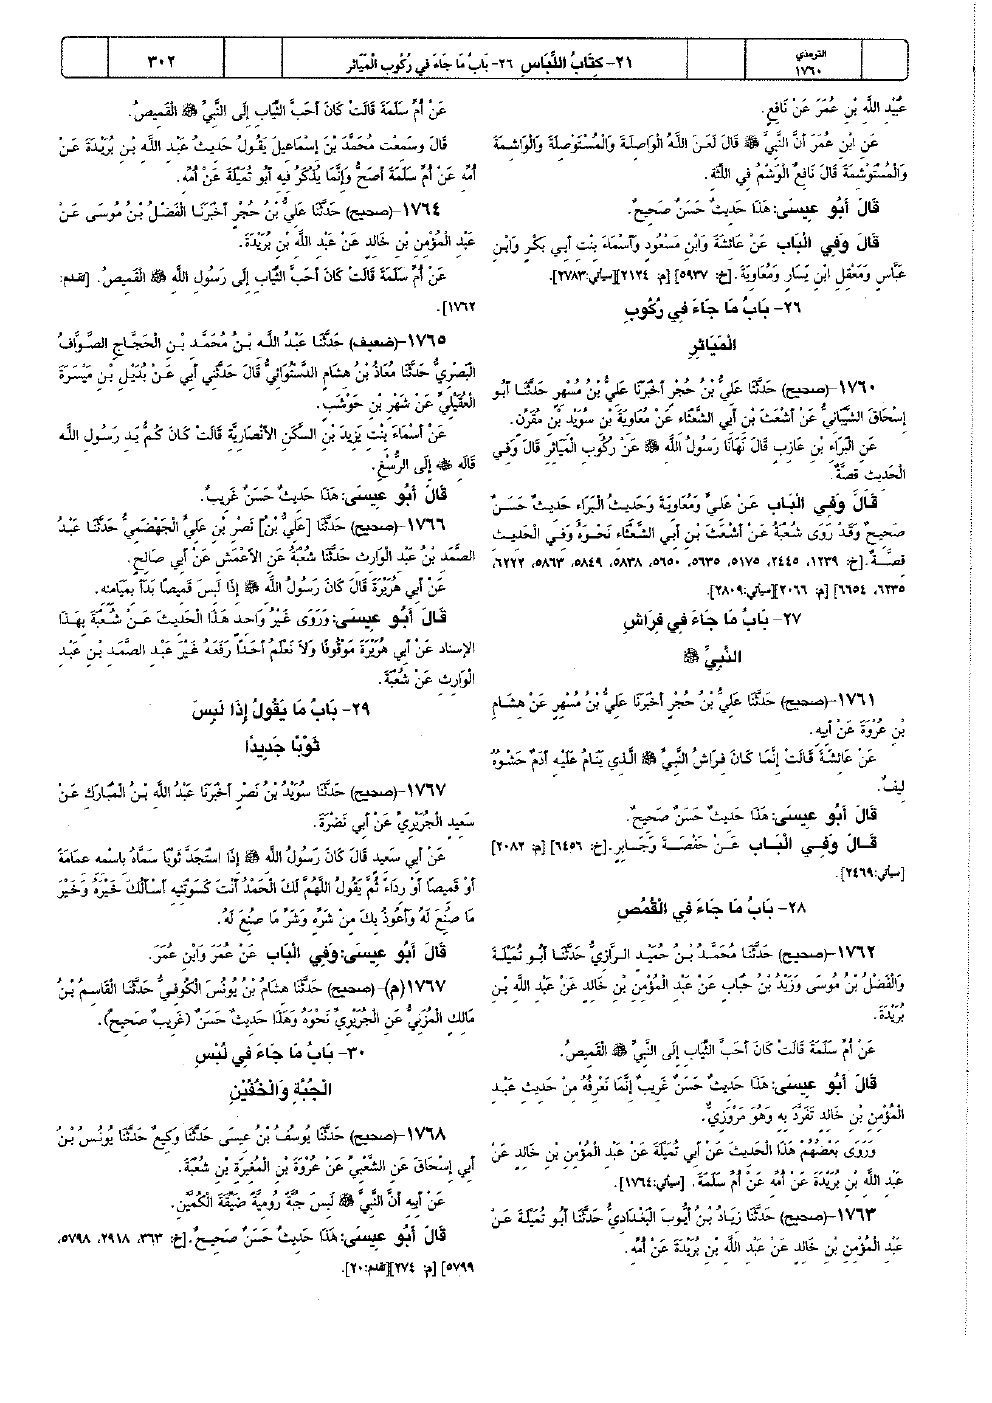 الترمذي
١٧٦٠
٢١- كِتَابُ اللِّبَاسِ ٢٦- بَابُ مَا جَاءَ فِي رُكُوبِ الْمَيَاثِرِ
٣٠٢
عُبَيْدِ اللَّهِ بْنِ عُمَرَ عَنْ نَافِعٍ.
عَنِ ابْنِ عُمَرَ أَنَّ النَّبِيَّ ﷺ قَالَ لَعَنَ اللَّهُ الْوَاصِلَةَ وَالْمُسْتَوْصِلَةَ وَالْوَاشِمَةَ
وَالْمُسْتَوْشِمَةَ قَالَ نَافِعٌ الْوَشْمُ فِي اللِّثَةِ.
قَالَ أَبُو عِيسَى: هَذَا حَدِيثٌ حَسَنٌ صَحِيحٌ.
قَالَ وَفِي الْبَاب عَنْ عَائِشَةَ وَابْنِ مَسْعُودٍ وَأَسْمَاءَ بِنْتِ أَبِي بَكْرٍ وَابْنِ
عَبَّاسٍ وَمَعْقِلِ ابْنِ يَسَارٍ وَمُعَاوِيَةَ. [خ: ٥٩٣٧] [م: ٢١٢٤][سيأتي:٢٧٨٣].
٢٦- بَابُ مَا جَاءَ فِي رُكُوبِ
الْمَيَاثِرِ
١٧٦٠-(صحيح) حَدَّثَنَا عَلِيُّ بْنُ حُجْرٍ أَخْبَرَنَا عَلِيُّ بْنُ مُسْهِرٍ حَدَّثَنَا أَبُو
إِسْحَاقَ الشَّيْبَانِيُّ عَنْ أَشْعَثَ بْنِ أَبِي الشَّعْثَاءِ عَنْ مُعَاوِيَةَ بْنِ سُوَيْدِ بْنِ مُقَرِّنٍ.
عَنِ الْبَرَاءِ بْنِ عَازِبٍ قَالَ نَهَانَا رَسُولُ اللَّهِ ﷺ عَنْ رُكُوبِ الْمَيَاثِرِ قَالَ وَفِي
الْحَدِيثِ قِصَّةٌ.
قَالَ وَفِي الْبَاب عَنْ عَلِيٍّ وَمُعَاوِيَةَ وَحَدِيثُ الْبَرَاءِ حَدِيثٌ حَسَنٌ
صَحِيحٌ وَقَدْ رَوَى شُعْبَةُ عَنْ أَشْعَثَ بْنِ أَبِي الشَّعْثَاءِ نَحْوَهُ وَفِي الْحَدِيثِ
قِصَّةٌ. [خ: ١٢٣٩، ٢٤٤٥، ٥١٧٥، ٥٦٣٥، ٥٦٥٠، ٥٨٣٨، ٥٨٤٩، ٥٨٦٣، ٦٢٢٢،
٦٢٣٥، ٦٦٥٤] [م: ٢٠٦٦][سيأتي:٢٨٠٩].
٢٧- بَابُ مَا جَاءَ فِي فِرَاشِ
النَّبِيِّ ﷺ
١٧٦١-(صحيح) حَدَّثَنَا عَلِيُّ بْنُ حُجْرٍ أَخْبَرَنَا عَلِيُّ بْنُ مُسْهِرٍ عَنْ هِشَامِ
بْنِ عُرْوَةَ عَنْ أَبِيهِ.
عَنْ عَائِشَةَ قَالَتْ إِنَّمَا كَانَ فِرَاشُ النَّبِيِّ ﷺ الَّذِي يَنَامُ عَلَيْهِ أَدَمٌ حَشْوُهُ
لِيفٌ.
قَالَ أَبُو عِيسَى: هَذَا حَدِيثٌ حَسَنٌ صَحِيحٌ.
قَالَ وَفِي الْبَاب عَنْ حَفْصَةَ وَجَابِرٍ. [خ: ٦٤٥٦] [م: ٢٠٨٢]
[سيأتي:٢٤٦٩].
٢٨- بَابُ مَا جَاءَ فِي الْقُمُصِ
١٧٦٢-(صحيح) حَدَّثَنَا مُحَمَّدُ بْنُ حُمَيْدٍ الرَّازِيُّ حَدَّثَنَا أَبُو تُمَيْلَةَ
وَالْفَضْلُ بْنُ مُوسَى وَزَيْدُ بْنُ حُبَابٍ عَنْ عَبْدِ الْمُؤْمِنِ بْنِ خَالِدٍ عَنْ عَبْدِ اللَّهِ بْنِ
بُرَيْدَةَ.
عَنْ أُمِّ سَلَمَةَ قَالَتْ كَانَ أَحَبَّ الثِّيَابِ إِلَى النَّبِيِّ ﷺ الْقَمِيصُ.
قَالَ أَبُو عِيسَى: هَذَا حَدِيثٌ حَسَنٌ غَرِيبٌ إِنَّمَا نَعْرِفُهُ مِنْ حَدِيثِ عَبْدِ
الْمُؤْمِنِ بْنِ خَالِدٍ تَفَرَّدَ بِهِ وَهُوَ مَرْوَزِيٌّ.
وَرَوَى بَعْضُهُمْ هَذَا الْحَدِيثَ عَنْ أَبِي تُمَيْلَةَ عَنْ عَبْدِ الْمُؤْمِنِ بْنِ خَالِدٍ عَنْ
عَبْدِ اللَّهِ بْنِ بُرَيْدَةَ عَنْ أُمِّهِ عَنْ أُمِّ سَلَمَةَ. [سيأتي:١٧٦٤].
١٧٦٣-(صحيح) حَدَّثَنَا زِيَادُ بْنُ أَيُّوبَ الْبَغْدَادِيُّ حَدَّثَنَا أَبُو تُمَيْلَةَ عَنْ
عَبْدِ الْمُؤْمِنِ بْنِ خَالِدٍ عَنْ عَبْدِ اللَّهِ بْنِ بُرَيْدَةَ عَنْ أُمِّهِ.
عَنْ أُمِّ سَلَمَةَ قَالَتْ كَانَ أَحَبَّ الثِّيَابِ إِلَى النَّبِيِّ ﷺ الْقَمِيصُ.
قَالَ وَسَمِعْت مُحَمَّدَ بْنَ إِسْمَاعِيلَ يَقُولُ حَدِيثُ عَبْدِ اللَّهِ بْنِ بُرَيْدَةَ عَنْ
أُمِّهِ عَنْ أُمِّ سَلَمَةَ أَصَحُّ وَإِنَّمَا يُذْكَرُ فِيهِ أَبُو تُمَيْلَةَ عَنْ أُمِّهِ.
١٧٦٤-(صحيح) حَدَّثَنَا عَلِيُّ بْنُ حُجْرٍ أَخْبَرَنَا الْفَضْلُ بْنُ مُوسَى عَنْ
عَبْدِ الْمُؤْمِنِ بْنِ خَالِدٍ عَنْ عَبْدِ اللَّهِ بْنِ بُرَيْدَةَ.
عَنْ أُمِّ سَلَمَةَ قَالَتْ كَانَ أَحَبَّ الثِّيَابِ إِلَى رَسُولِ اللَّهِ ﷺ الْقَمِيصُ. [تقدم:
١٧٦٢].
١٧٦٥-(ضعيف) حَدَّثَنَا عَبْدُ اللَّهِ بْنُ مُحَمَّدِ بْنِ الْحَجَّاجِ الصَّوَّافُ
الْبَصْرِيُّ حَدَّثَنَا مُعَاذُ بْنُ هِشَامٍ الدَّسْتُوَائِيُّ قَالَ حَدَّثَنِي أَبِي عَنْ بُدَيْلِ بْنِ مَيْسَرَةَ
الْعُقَيْلِيِّ عَنْ شَهْرِ بْنِ حَوْشَبٍ.
عَنْ أَسْمَاءَ بِنْتِ يَزِيدَ بْنِ السَّكَنِ الأَنْصَارِيَّةِ قَالَتْ كَانَ كُمُّ يَدِ رَسُولِ اللَّهِ
قَالَهِ ﷺ إِلَى الرُّسْغِ.
قَالَ أَبُو عِيسَى: هَذَا حَدِيثٌ حَسَنٌ غَرِيبٌ.
١٧٦٦-(صحيح) حَدَّثَنَا [عَلِيُّ بْنُ] نَصْرِ بْنِ عَلِيٍّ الْجَهْضَمِيُّ حَدَّثَنَا عَبْدُ
الصَّمَدِ بْنُ عَبْدِ الْوَارِثِ حَدَّثَنَا شُعْبَةُ عَنِ الأَعْمَشِ عَنْ أَبِي صَالِحٍ.
عَنْ أَبِي هُرَيْرَةَ قَالَ كَانَ رَسُولُ اللَّهِ ﷺ إِذَا لَبِسَ قَمِيصًا بَدَأَ بِمَيَامِنِهِ.
قَالَ أَبُو عِيسَى: وَرَوَى غَيْرُ وَاحِدٍ هَذَا الْحَدِيثَ عَنْ شُعْبَةَ بِهَذَا
الإِسْنَادِ عَنْ أَبِي هُرَيْرَةَ مَوْقُوفًا وَلاَ نَعْلَمُ أَحَدًا رَفَعَهُ غَيْرَ عَبْدِ الصَّمَدِ بْنِ عَبْدِ
الْوَارِثِ عَنْ شُعْبَةَ.
٢٩- بَابُ مَا يَقُولُ إِذَا لَبِسَ
ثَوْبًا جَدِيدًا
١٧٦٧-(صحيح) حَدَّثَنَا سُوَيْدُ بْنُ نَصْرٍ أَخْبَرَنَا عَبْدُ اللَّهِ بْنُ الْمُبَارَكِ عَنْ
سَعِيدٍ الْجُرَيْرِيِّ عَنْ أَبِي نَضْرَةَ.
عَنْ أَبِي سَعِيدٍ قَالَ كَانَ رَسُولُ اللَّهِ ﷺ إِذَا اسْتَجَدَّ ثَوْبًا سَمَّاهُ بِاسْمِهِ عِمَامَةً
أَوْ قَمِيصًا أَوْ رِدَاءً ثُمَّ يَقُولُ اللَّهُمَّ لَكَ الْحَمْدُ أَنْتَ كَسَوْتَنِيهِ أَسْأَلُكَ خَيْرَهُ وَخَيْرَ
مَا صُنِعَ لَهُ وَأَعُوذُ بِكَ مِنْ شَرِّهِ وَشَرِّ مَا صُنِعَ لَهُ.
قَالَ أَبُو عِيسَى: وَفِي الْبَاب عَنْ عُمَرَ وَابْنِ عُمَرَ.
١٧٦٧(م)-(صحيح) حَدَّثَنَا هِشَامُ بْنُ يُونُسَ الْكُوفِيُّ حَدَّثَنَا الْقَاسِمُ بْنُ
مَالِكٍ الْمُزَنِيُّ عَنِ الْجُرَيْرِيِّ نَحْوَهُ وَهَذَا حَدِيثٌ حَسَنٌ (غَرِيبٌ صَحِيحٌ).
٣٠- بَابُ مَا جَاءَ فِي لُبْسِ
الْجُبَّةِ وَالْخُفَّيْنِ
١٧٦٨-(صحيح) حَدَّثَنَا يُوسُفُ بْنُ عِيسَى حَدَّثَنَا وَكِيعٌ حَدَّثَنَا يُونُسُ بْنُ
أَبِي إِسْحَاقَ عَنِ الشَّعْبِيِّ عَنْ عُرْوَةَ بْنِ الْمُغِيرَةِ بْنِ شُعْبَةَ.
عَنْ أَبِيهِ أَنَّ النَّبِيَّ ﷺ لَبِسَ جُبَّةً رُومِيَّةً ضَيِّقَةَ الْكُمَّيْنِ.
قَالَ أَبُو عِيسَى: هَذَا حَدِيثٌ حَسَنٌ صَحِيحٌ. [خ: ٣٦٣، ٢٩١٨، ٥٧٩٨،
٥٧٩٩] [م: ٢٧٤][تقدم:٢٠].